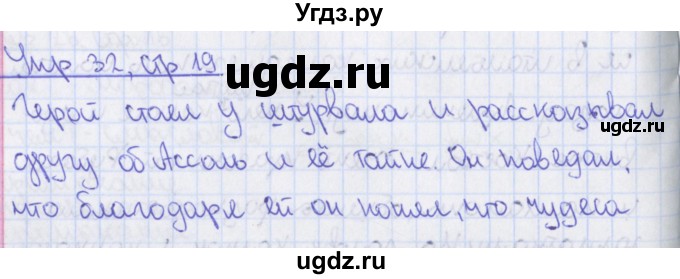 Угдз.ру
Упр 32, стр 19
ugdz.ru
Герой стоял у штурвала и рассказывал
ugdz.ru
другу об Ассоль и её тайне. Он поведал,
ugdz.ru
ugdz.ru
что благодаря ей он понял, что чудеса
ugdz.ru